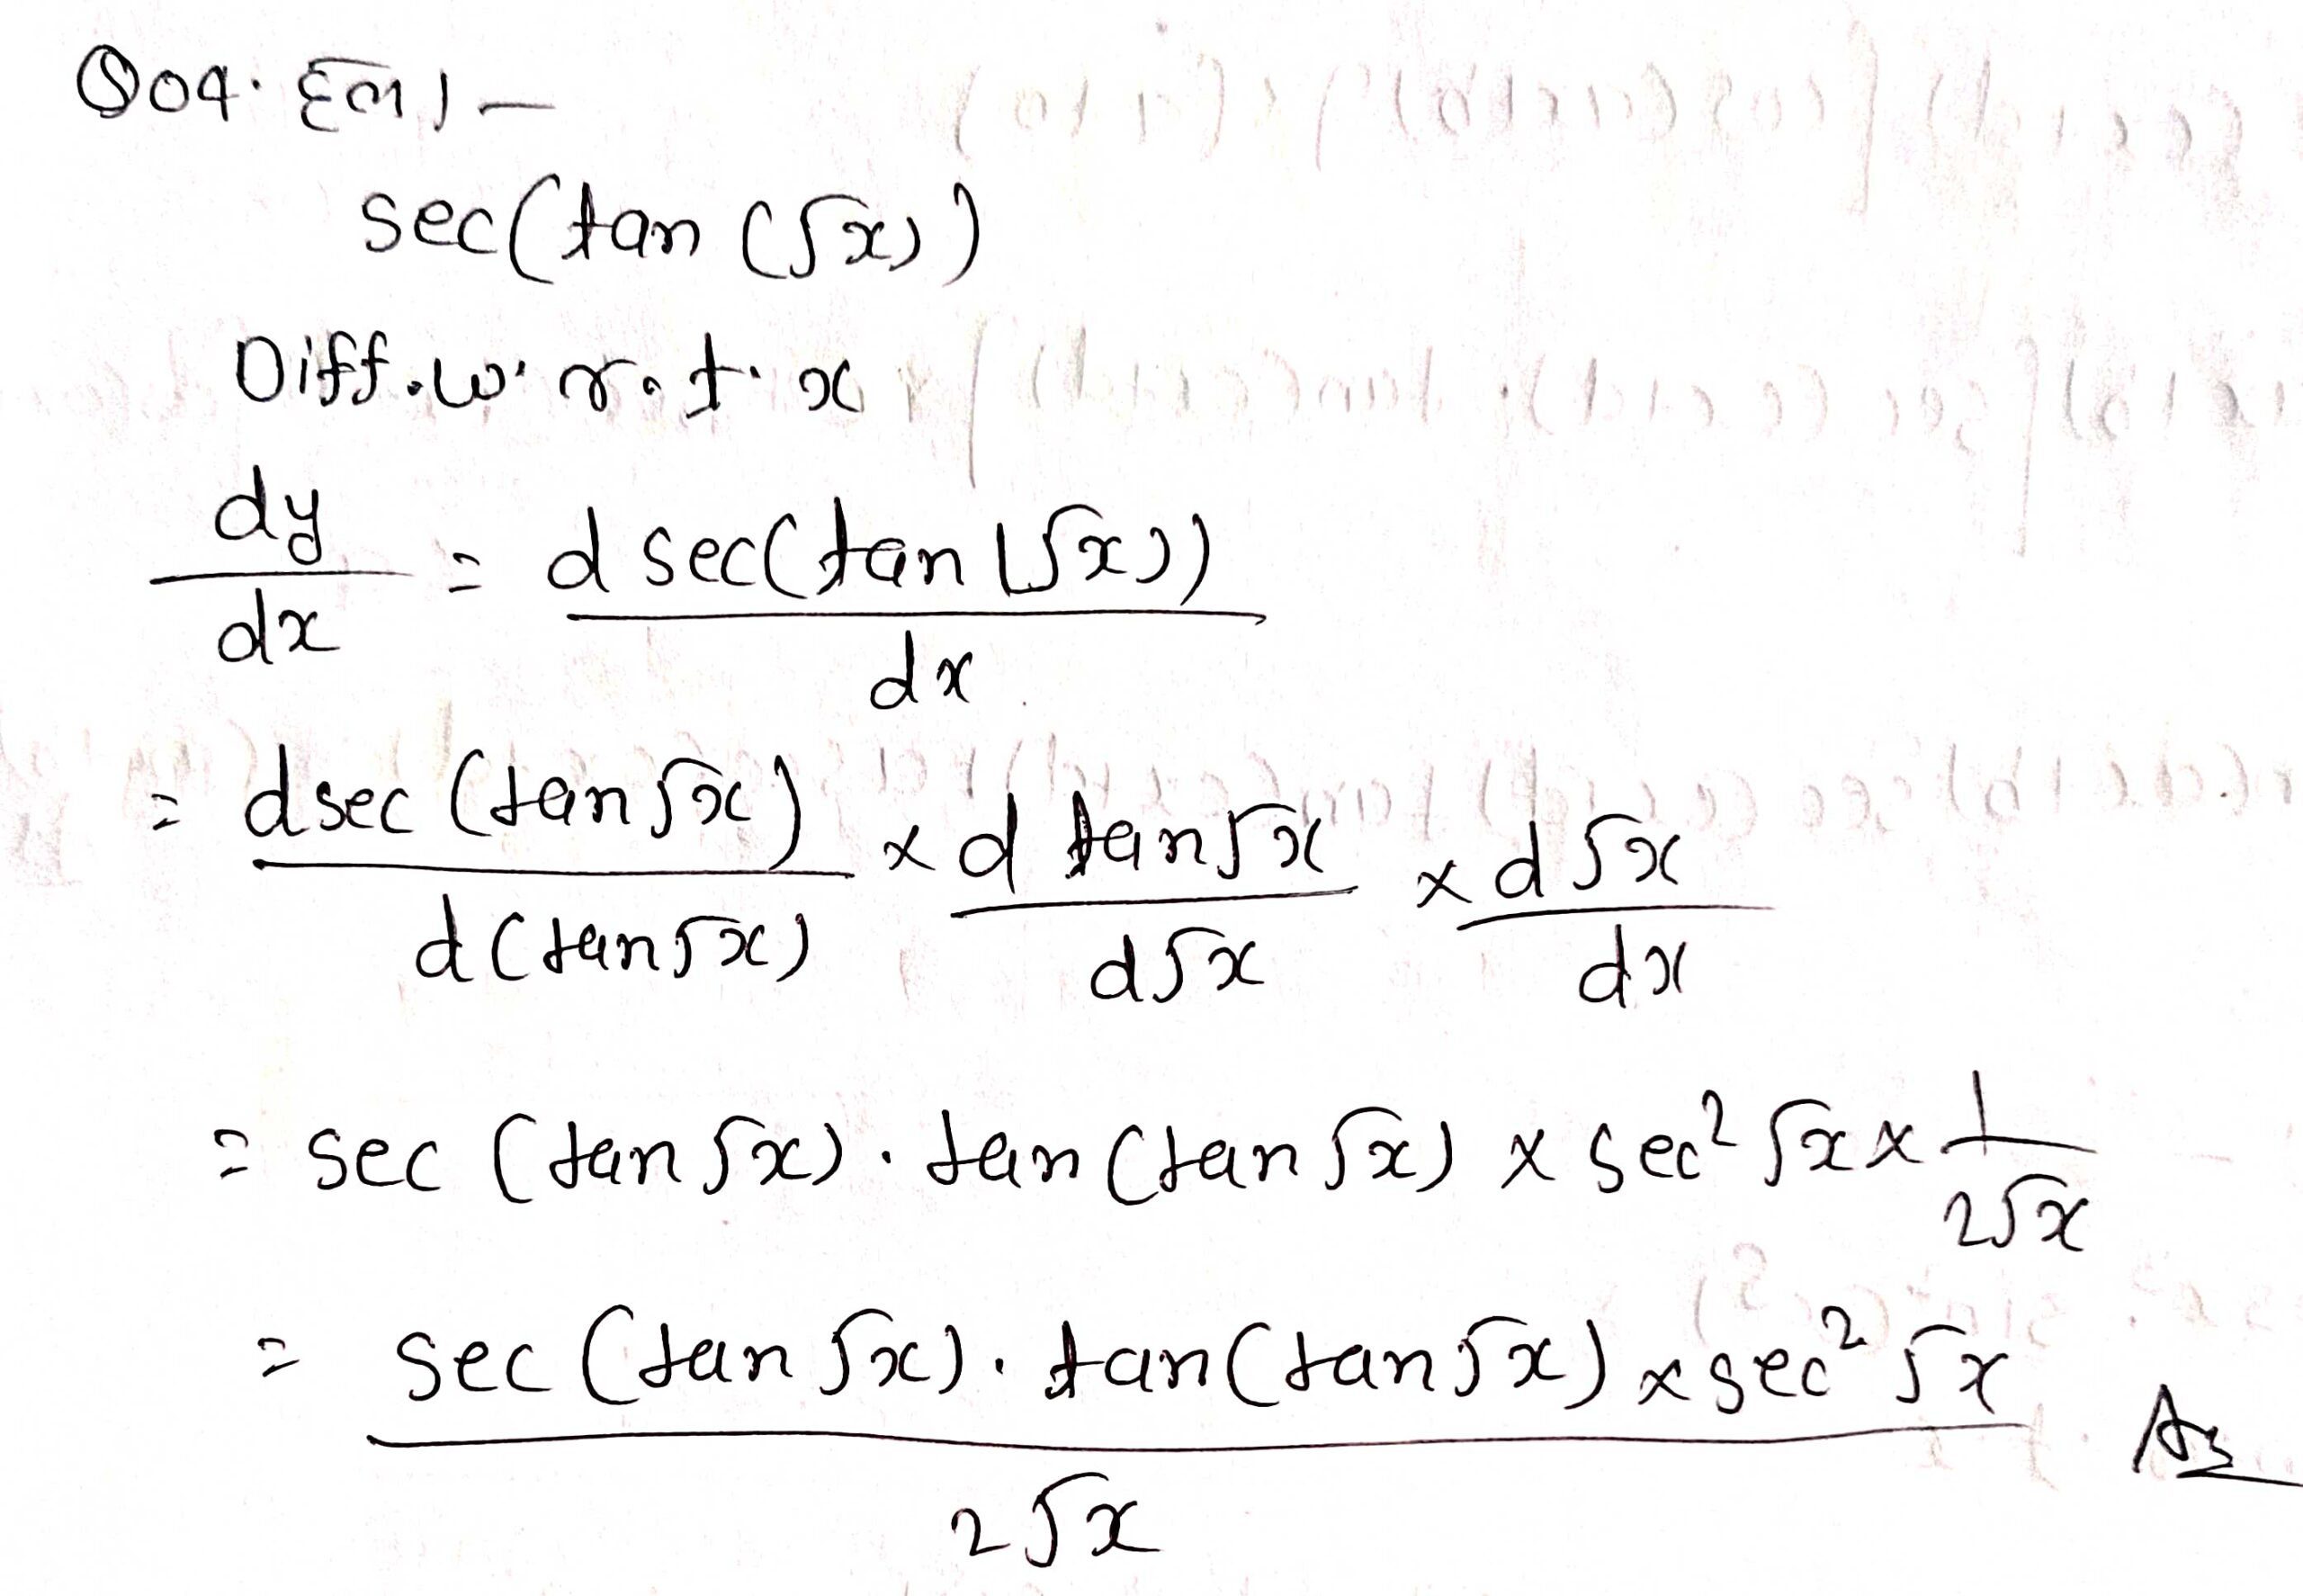 Q04. हल।-
sec(tan (√x))
Diff. w. r. t. x
dy/dx = d sec(tan (√x))/dx
= d sec (tan √x)/d(tan √x) × d tan √x/d√x × d√x/dx
= sec (tan √x) . tan (tan √x) × sec² √x × 1/2√x
= sec (tan √x) . tan (tan √x) × sec² √x/2√x As